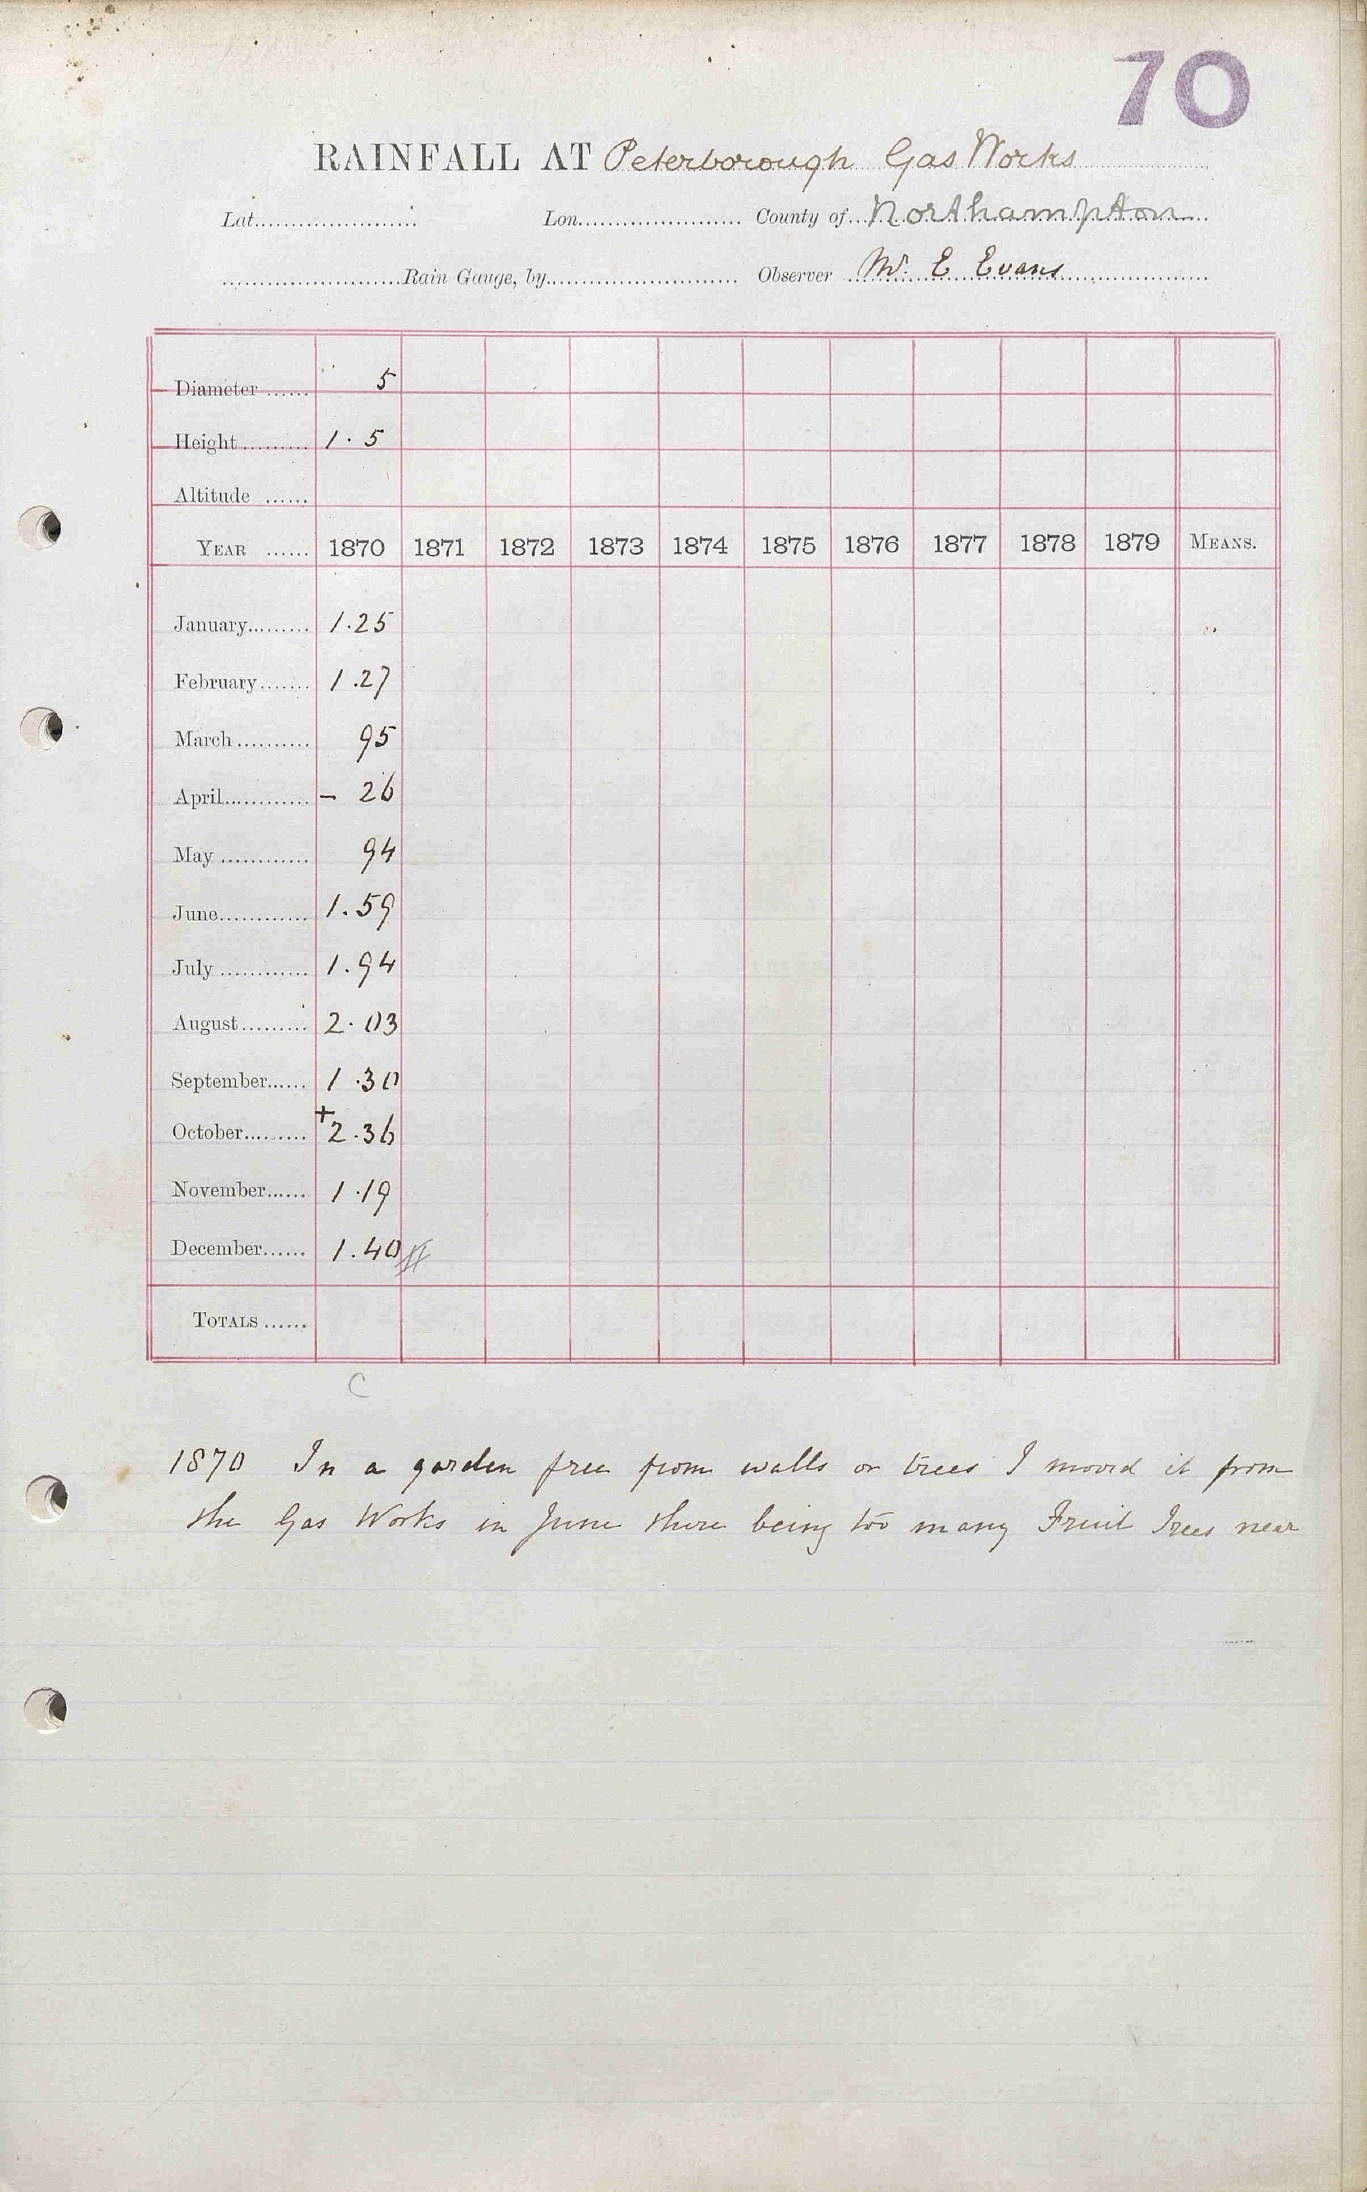 70
RAINFALL AT Peterborough Gas Works
Lat. Lon. County of Northampton
Rain Gauge, by Observer Mr. E Evans
Diameter 5
Height 1.5
Altitude
YEAR 1870 1871 1872 1873 1874 1875 1876 1877 1878 1879 MEANS.
January 1.25
February 1.27
March 95
April – 26
May 94
June 1.59
July 1.94
August 2.03
September 1.30
October +2.36
November 1.19
December 1.40
TOTALS
C
1870 In a garden free from walls or trees I moved it from
the Gas Works in June there being too many Fruit Trees near